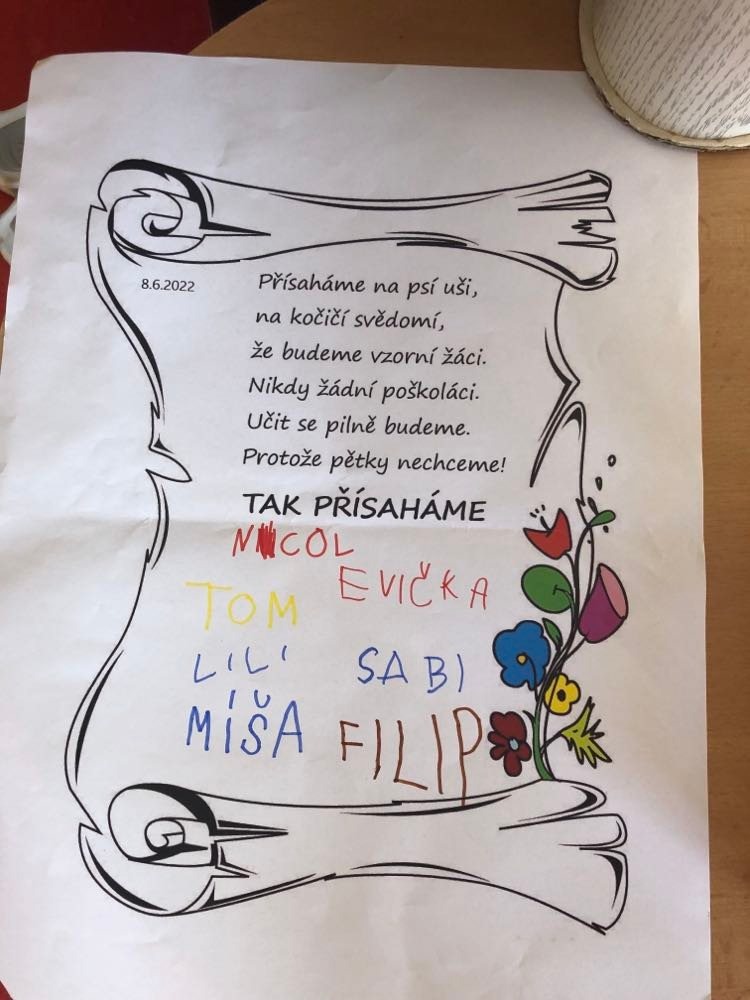 8.6.2022
Přísaháme na psí uši,
na kočičí svědomí,
že budeme vzorní žáci.
Nikdy žádní poškoláci.
Učit se pilně budeme.
Protože pětky nechceme!
TAK PŘÍSAHÁME
NICOL
EVIČKA
TOM
LILI
SABI
MÍŠA
FILIP